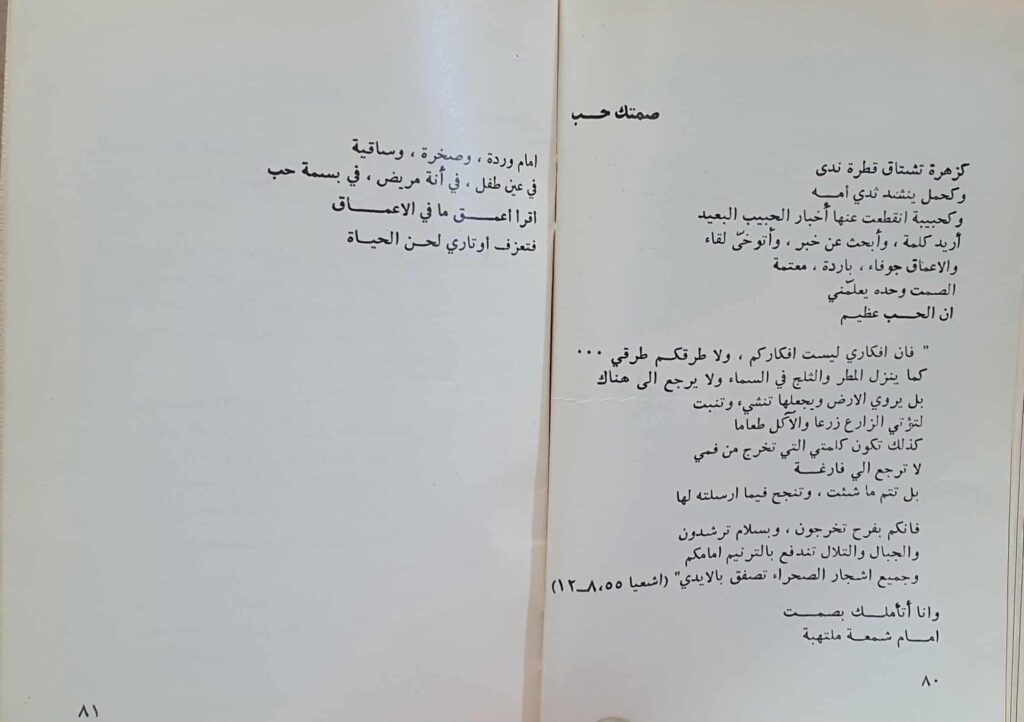 صمتك حب
كزهرة تشتاق قطرة ندى
وكحمل ينشد ثدي أمه
وكحبيبة انقطعت عنها أخبار الحبيب البعيد
أريد كلمة ، وأبحث عن خبر ، وأتوخّى لقاء
والاعماق جوفاء ، باردة ، معتمة
الصمت وحده يعلّمني
ان الحب عظيم
" فان افكاري ليست افكاركم ، ولا طرقكم طرقي ...
كما ينزل المطر والثلج في السماء ولا يرجع الى هناك
بل يروي الارض ويجعلها تنشيء وتنبت
لتؤتي الزارع زرعا والآكل طعاما
كذلك تكون كلمتي التي تخرج من فمي
لا ترجع الي فارغة
بل تتم ما شئت ، وتنجح فيما ارسلته لها
فانكم بفرح تخرجون ، وبسلام ترشدون
والجبال والتلال تندفع بالترنيم امامكم
وجميع اشجار الصحراء تصفق بالايدي" (اشعيا ٥٥،٨ـ١٢)
وانا أتأملك بصمت
امام شمعة ملتهبة
٨٠
امام وردة ، وصخرة ، وساقية
في عين طفل ، في أنة مريض ، في بسمة حب
اقرا اعمق ما في الاعماق
فتعزف اوتاري لحن الحياة
٨١